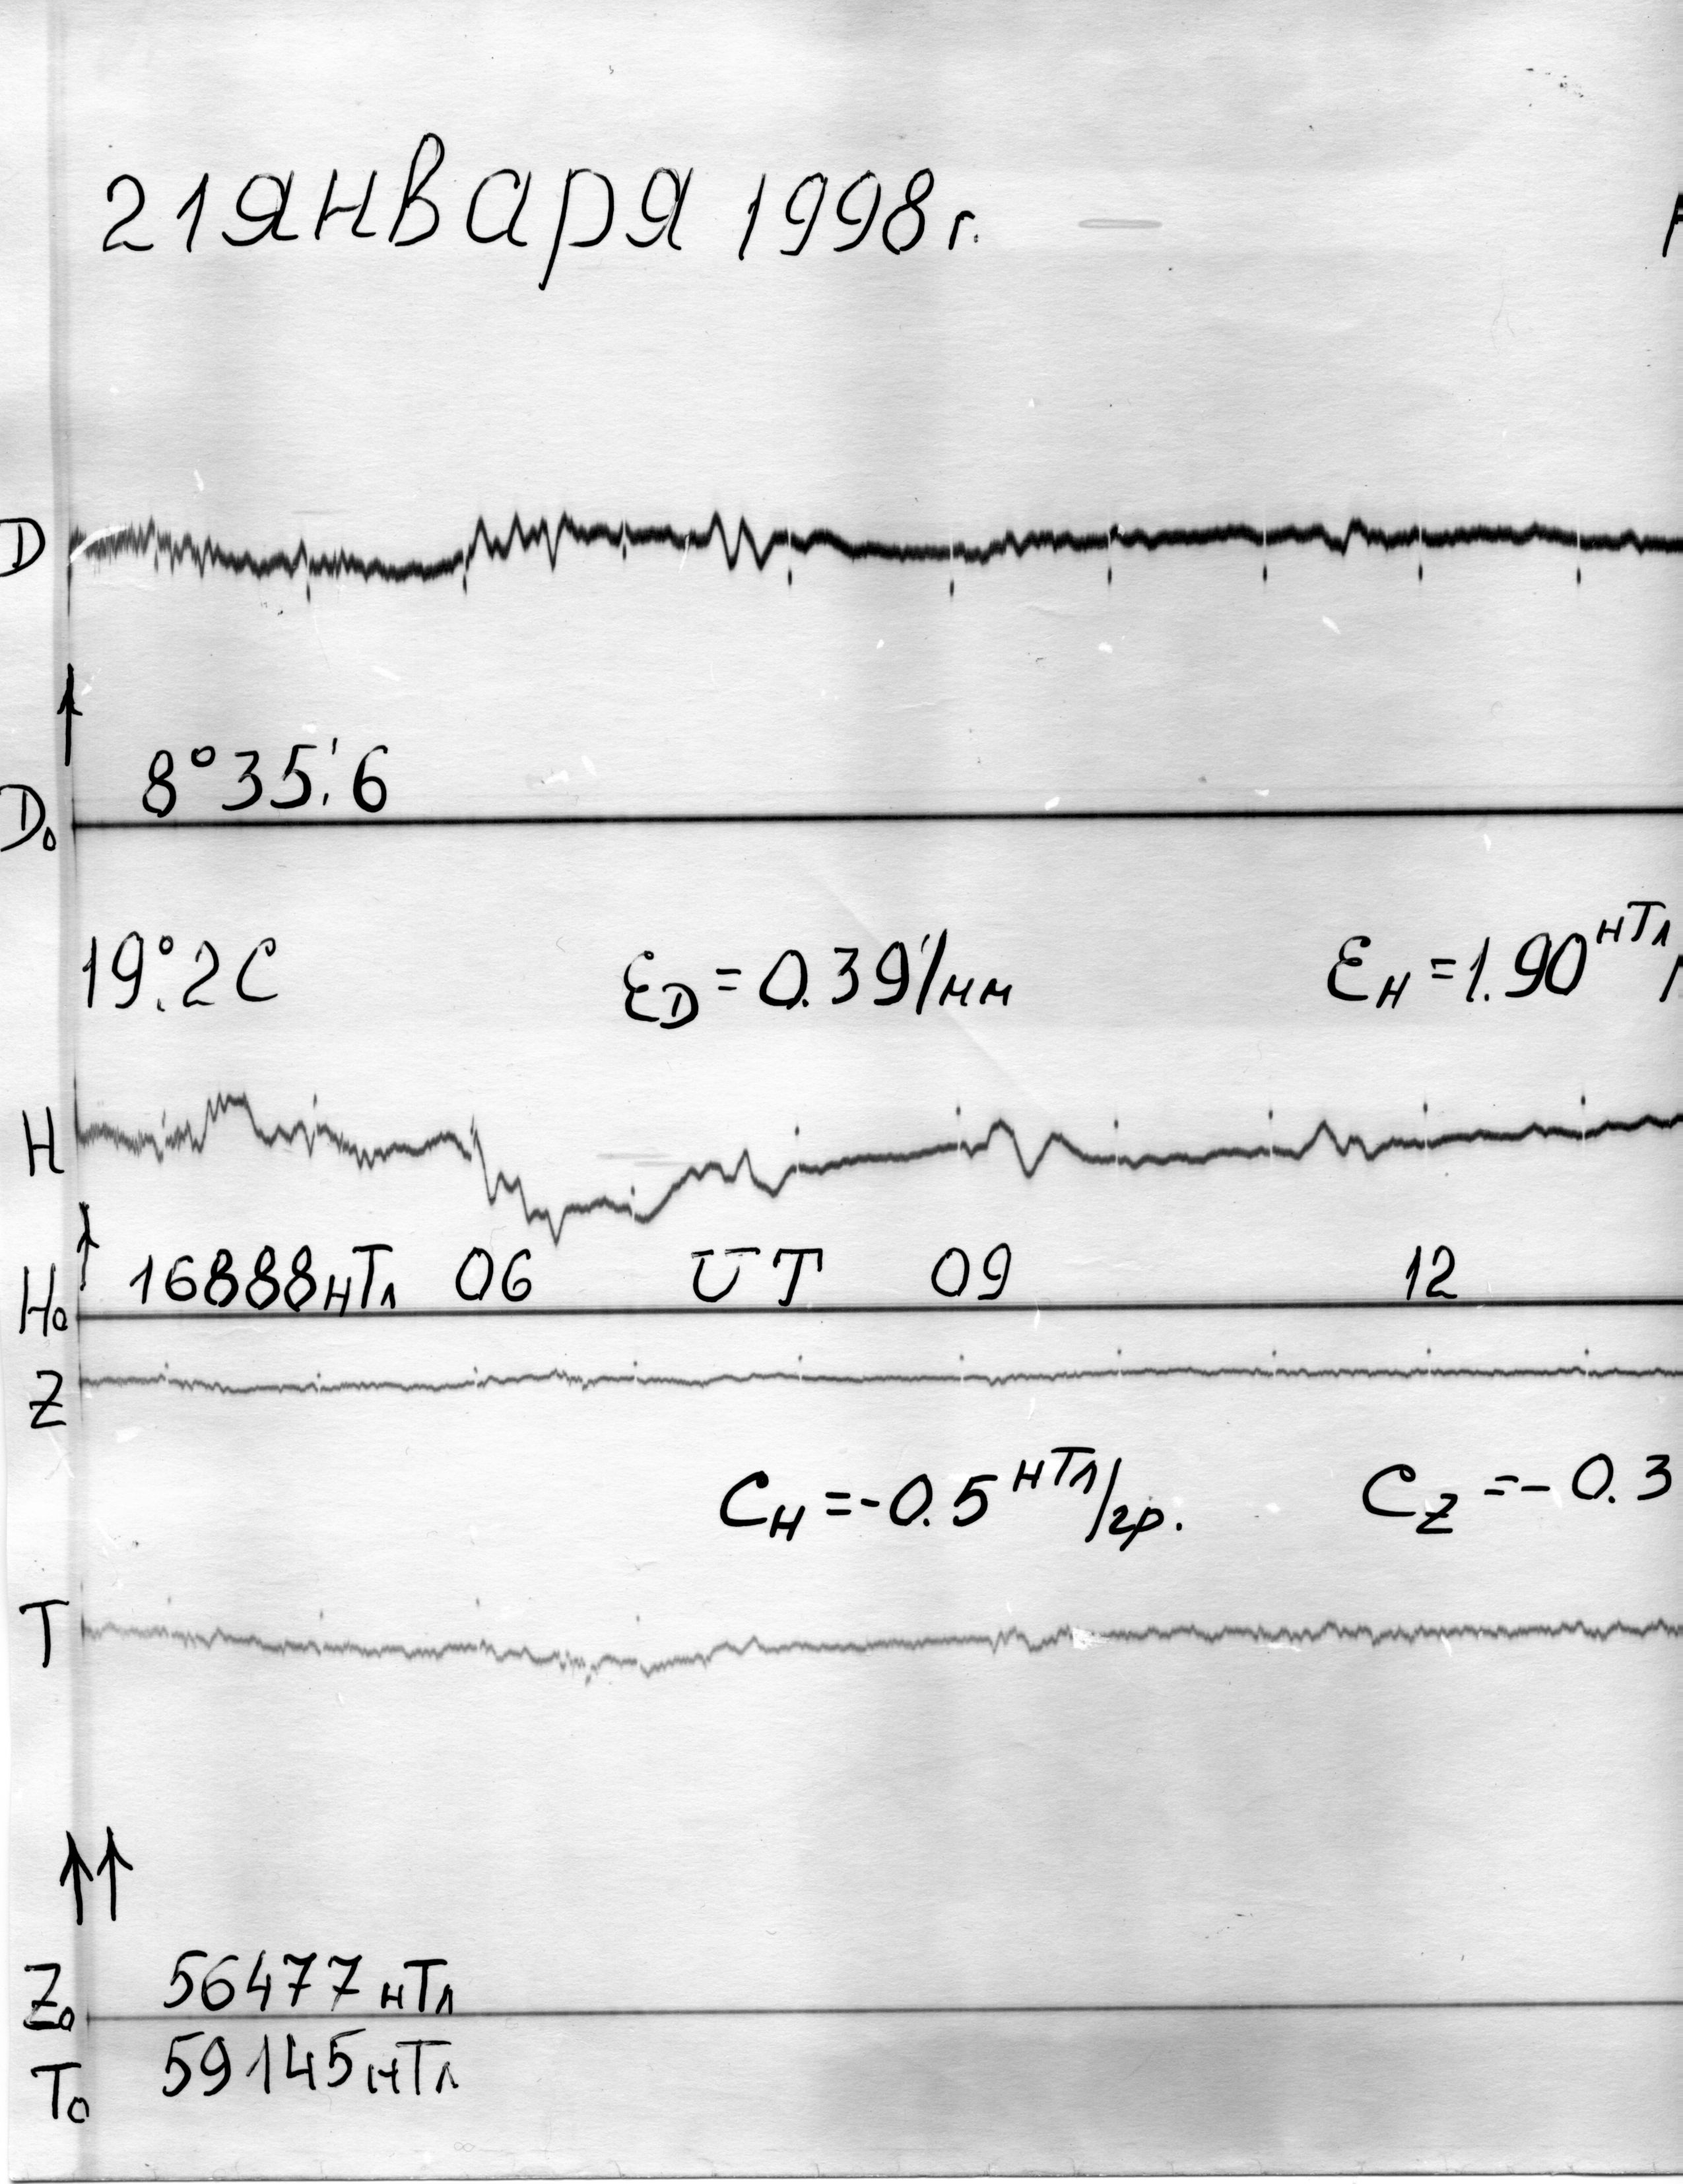 21 января 1998 г.
D
8°35.'6
D₀
19.°2 C
ε_D = 0.39'/мм
ε_H = 1.90 нТл/
H
16888 нТл 06 UT 09 12
H₀
Z
C_H = -0.5 нТл/гр.
C_Z = - 0.3
T
56477 нТл
Z₀
59145 нТл
T₀